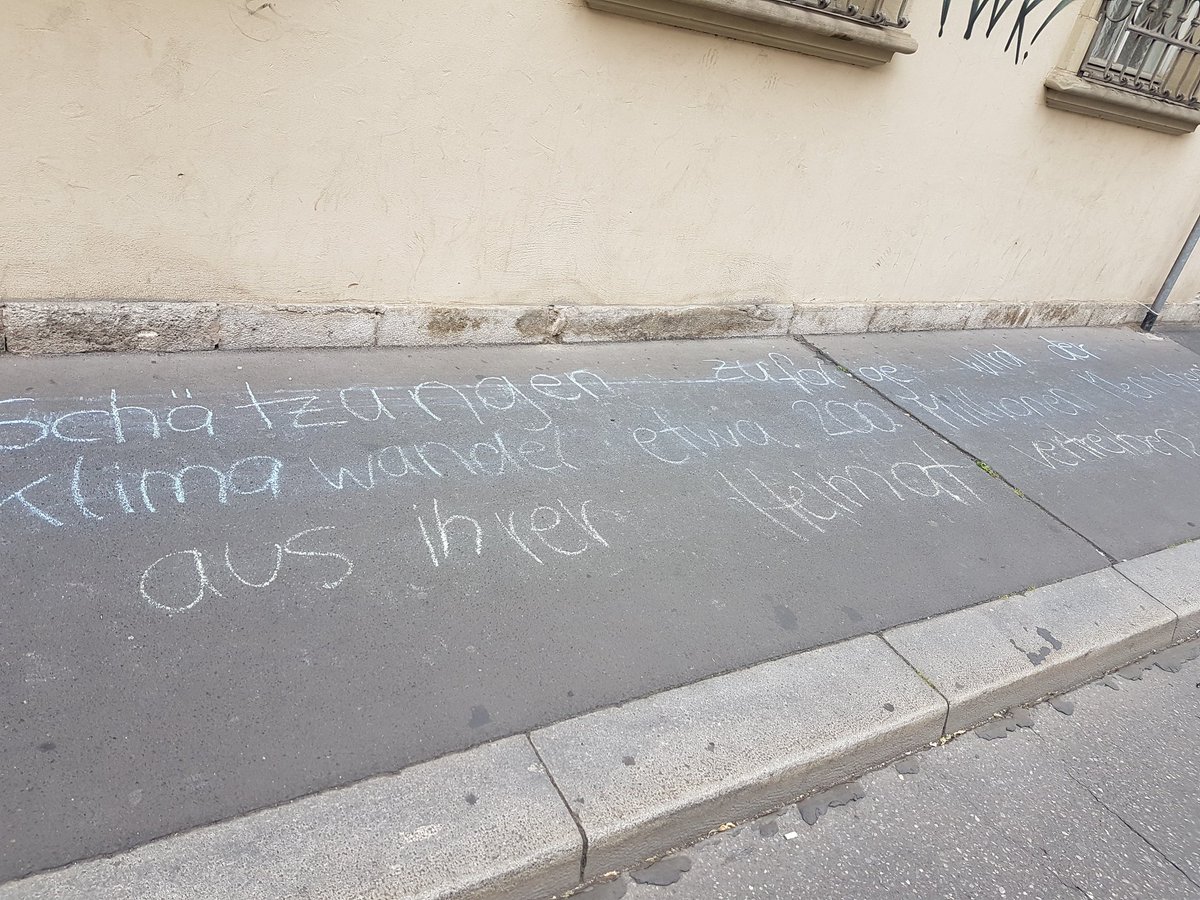 Schätzungen zufolge wird der
Klimawandel etwa 200 Millionen
aus ihrer Heimat vertreiben